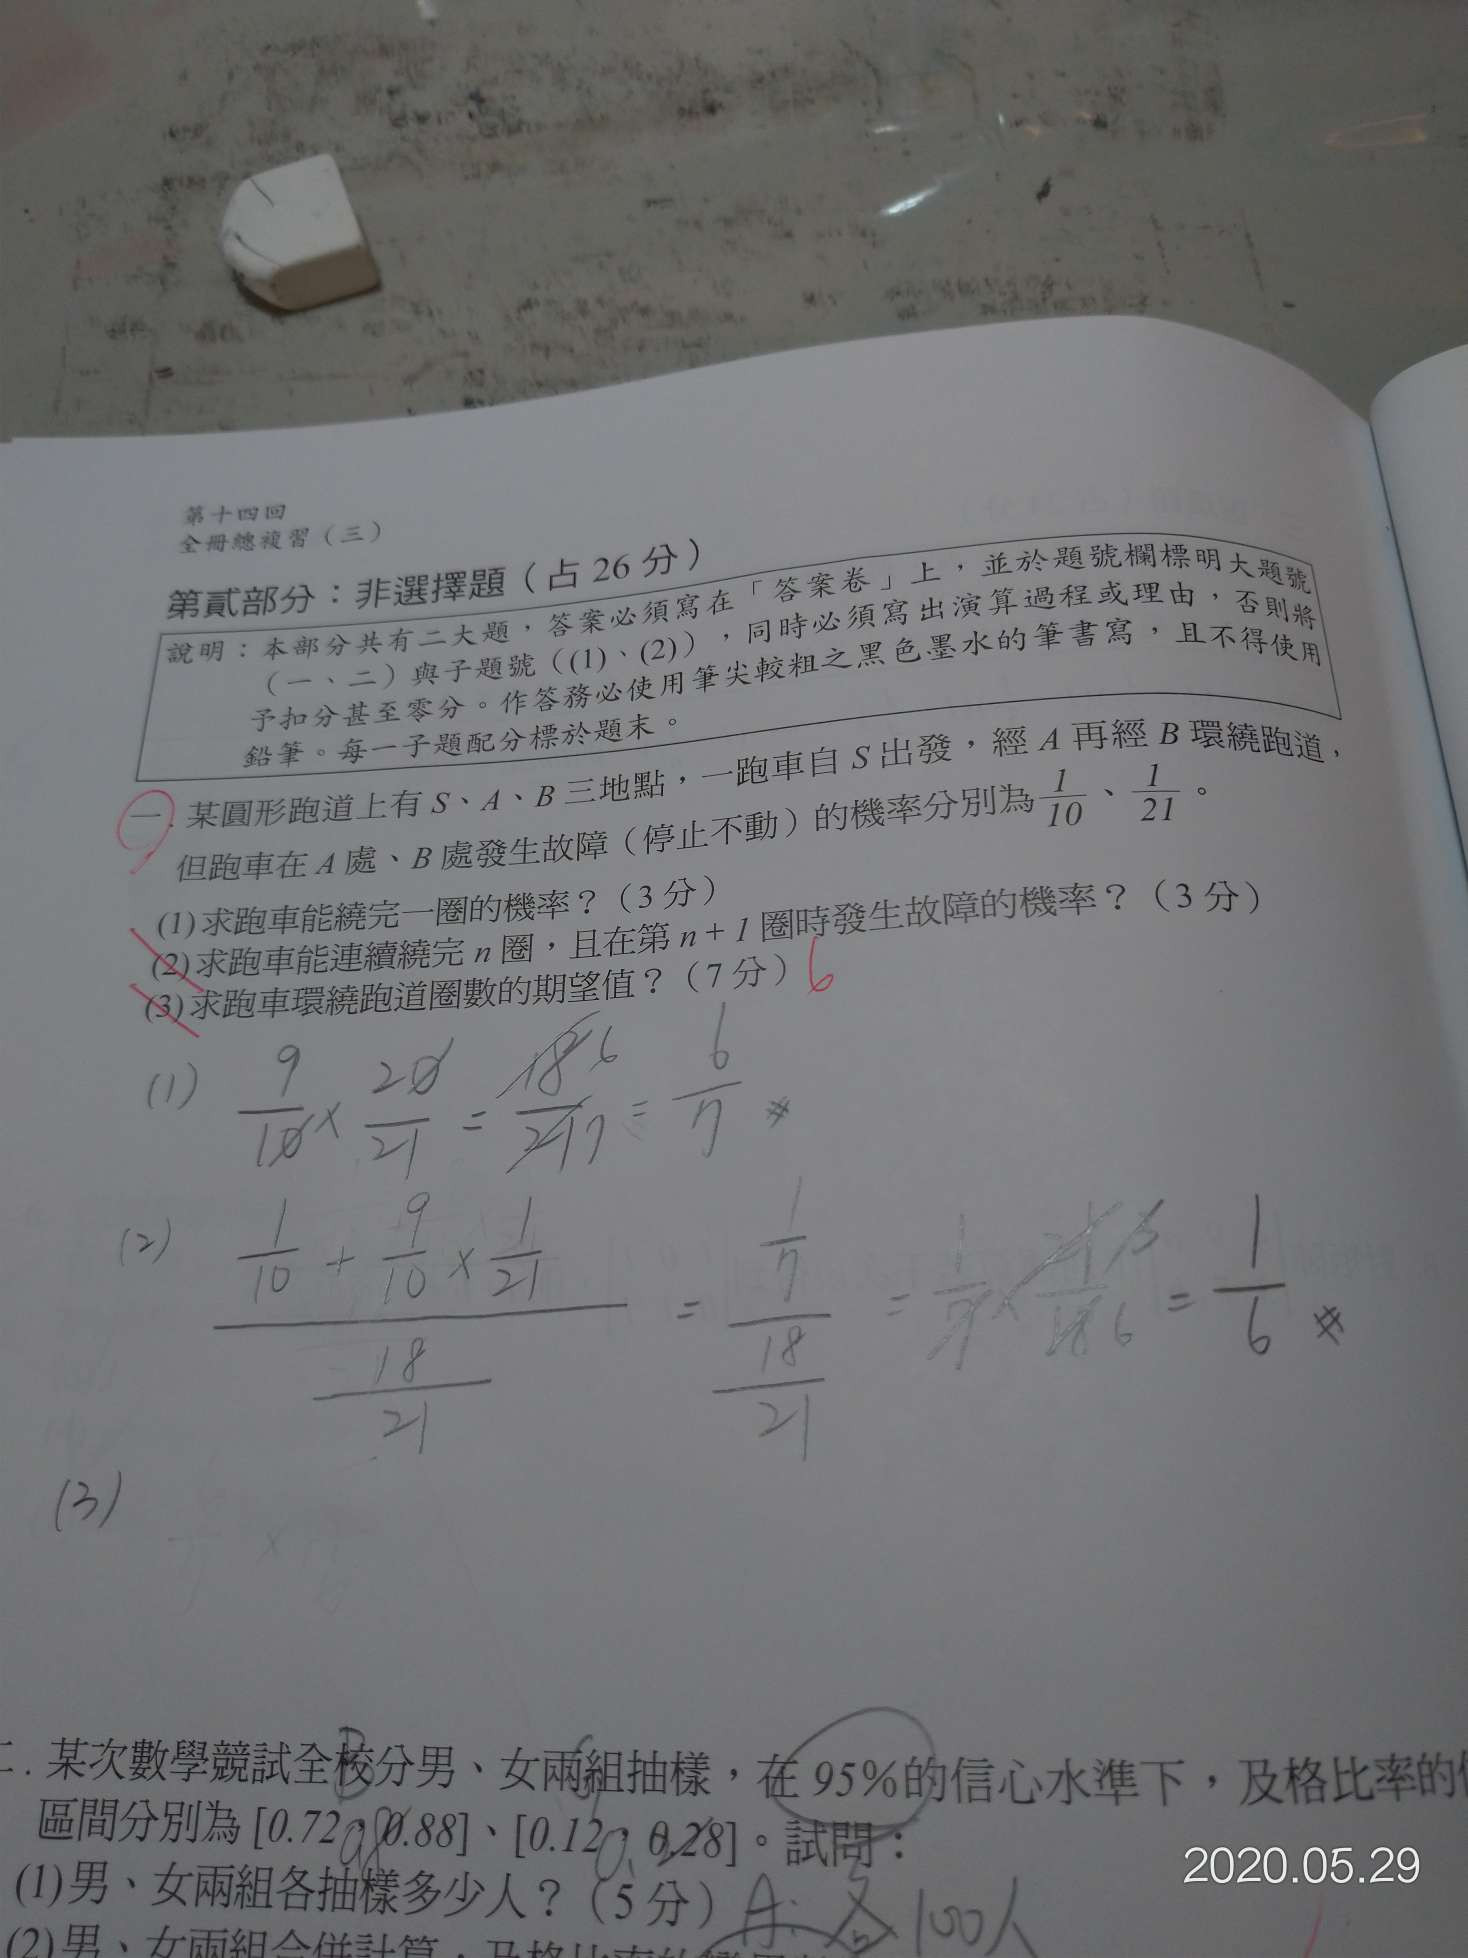 第十四回
全冊總複習（三）
第貳部分：非選擇題（占 26 分）
說明：本部分共有二大題，答案必須寫在「答案卷」上，並於題號欄標明大題號
（一、二）與子題號（(1)、(2)），同時必須寫出演算過程或理由，否則將
予扣分甚至零分。作答務必使用筆尖較粗之黑色墨水的筆書寫，且不得使用
鉛筆。每一子題配分標於題末。
一. 某圓形跑道上有 S、A、B 三地點，一跑車自 S 出發，經 A 再經 B 環繞跑道，
但跑車在 A 處、B 處發生故障（停止不動）的機率分別為 1/10、1/21。
(1)求跑車能繞完一圈的機率？（3 分）
(2)求跑車能連續繞完 n 圈，且在第 n + 1 圈時發生故障的機率？（3 分）
(3)求跑車環繞跑道圈數的期望值？（7 分） 6
(1) 9/10 × 20/21 = 18 6/21 7 = 6/7 #
(2) (1/10 + 9/10 × 1/21)/(18/21) = (1/7)/(18/21) = 1/7 × 21 3/18 6 = 1/6 #
(3)
二. 某次數學競試全校分男、女兩組抽樣，在 95%的信心水準下，及格比率的信
區間分別為 [0.72，0.88]、[0.12，0.28]。試問：
(1)男、女兩組各抽樣多少人？（5 分） A: 各 100人
(2)男、女兩組合併計算，及格比率的
2020.05.29